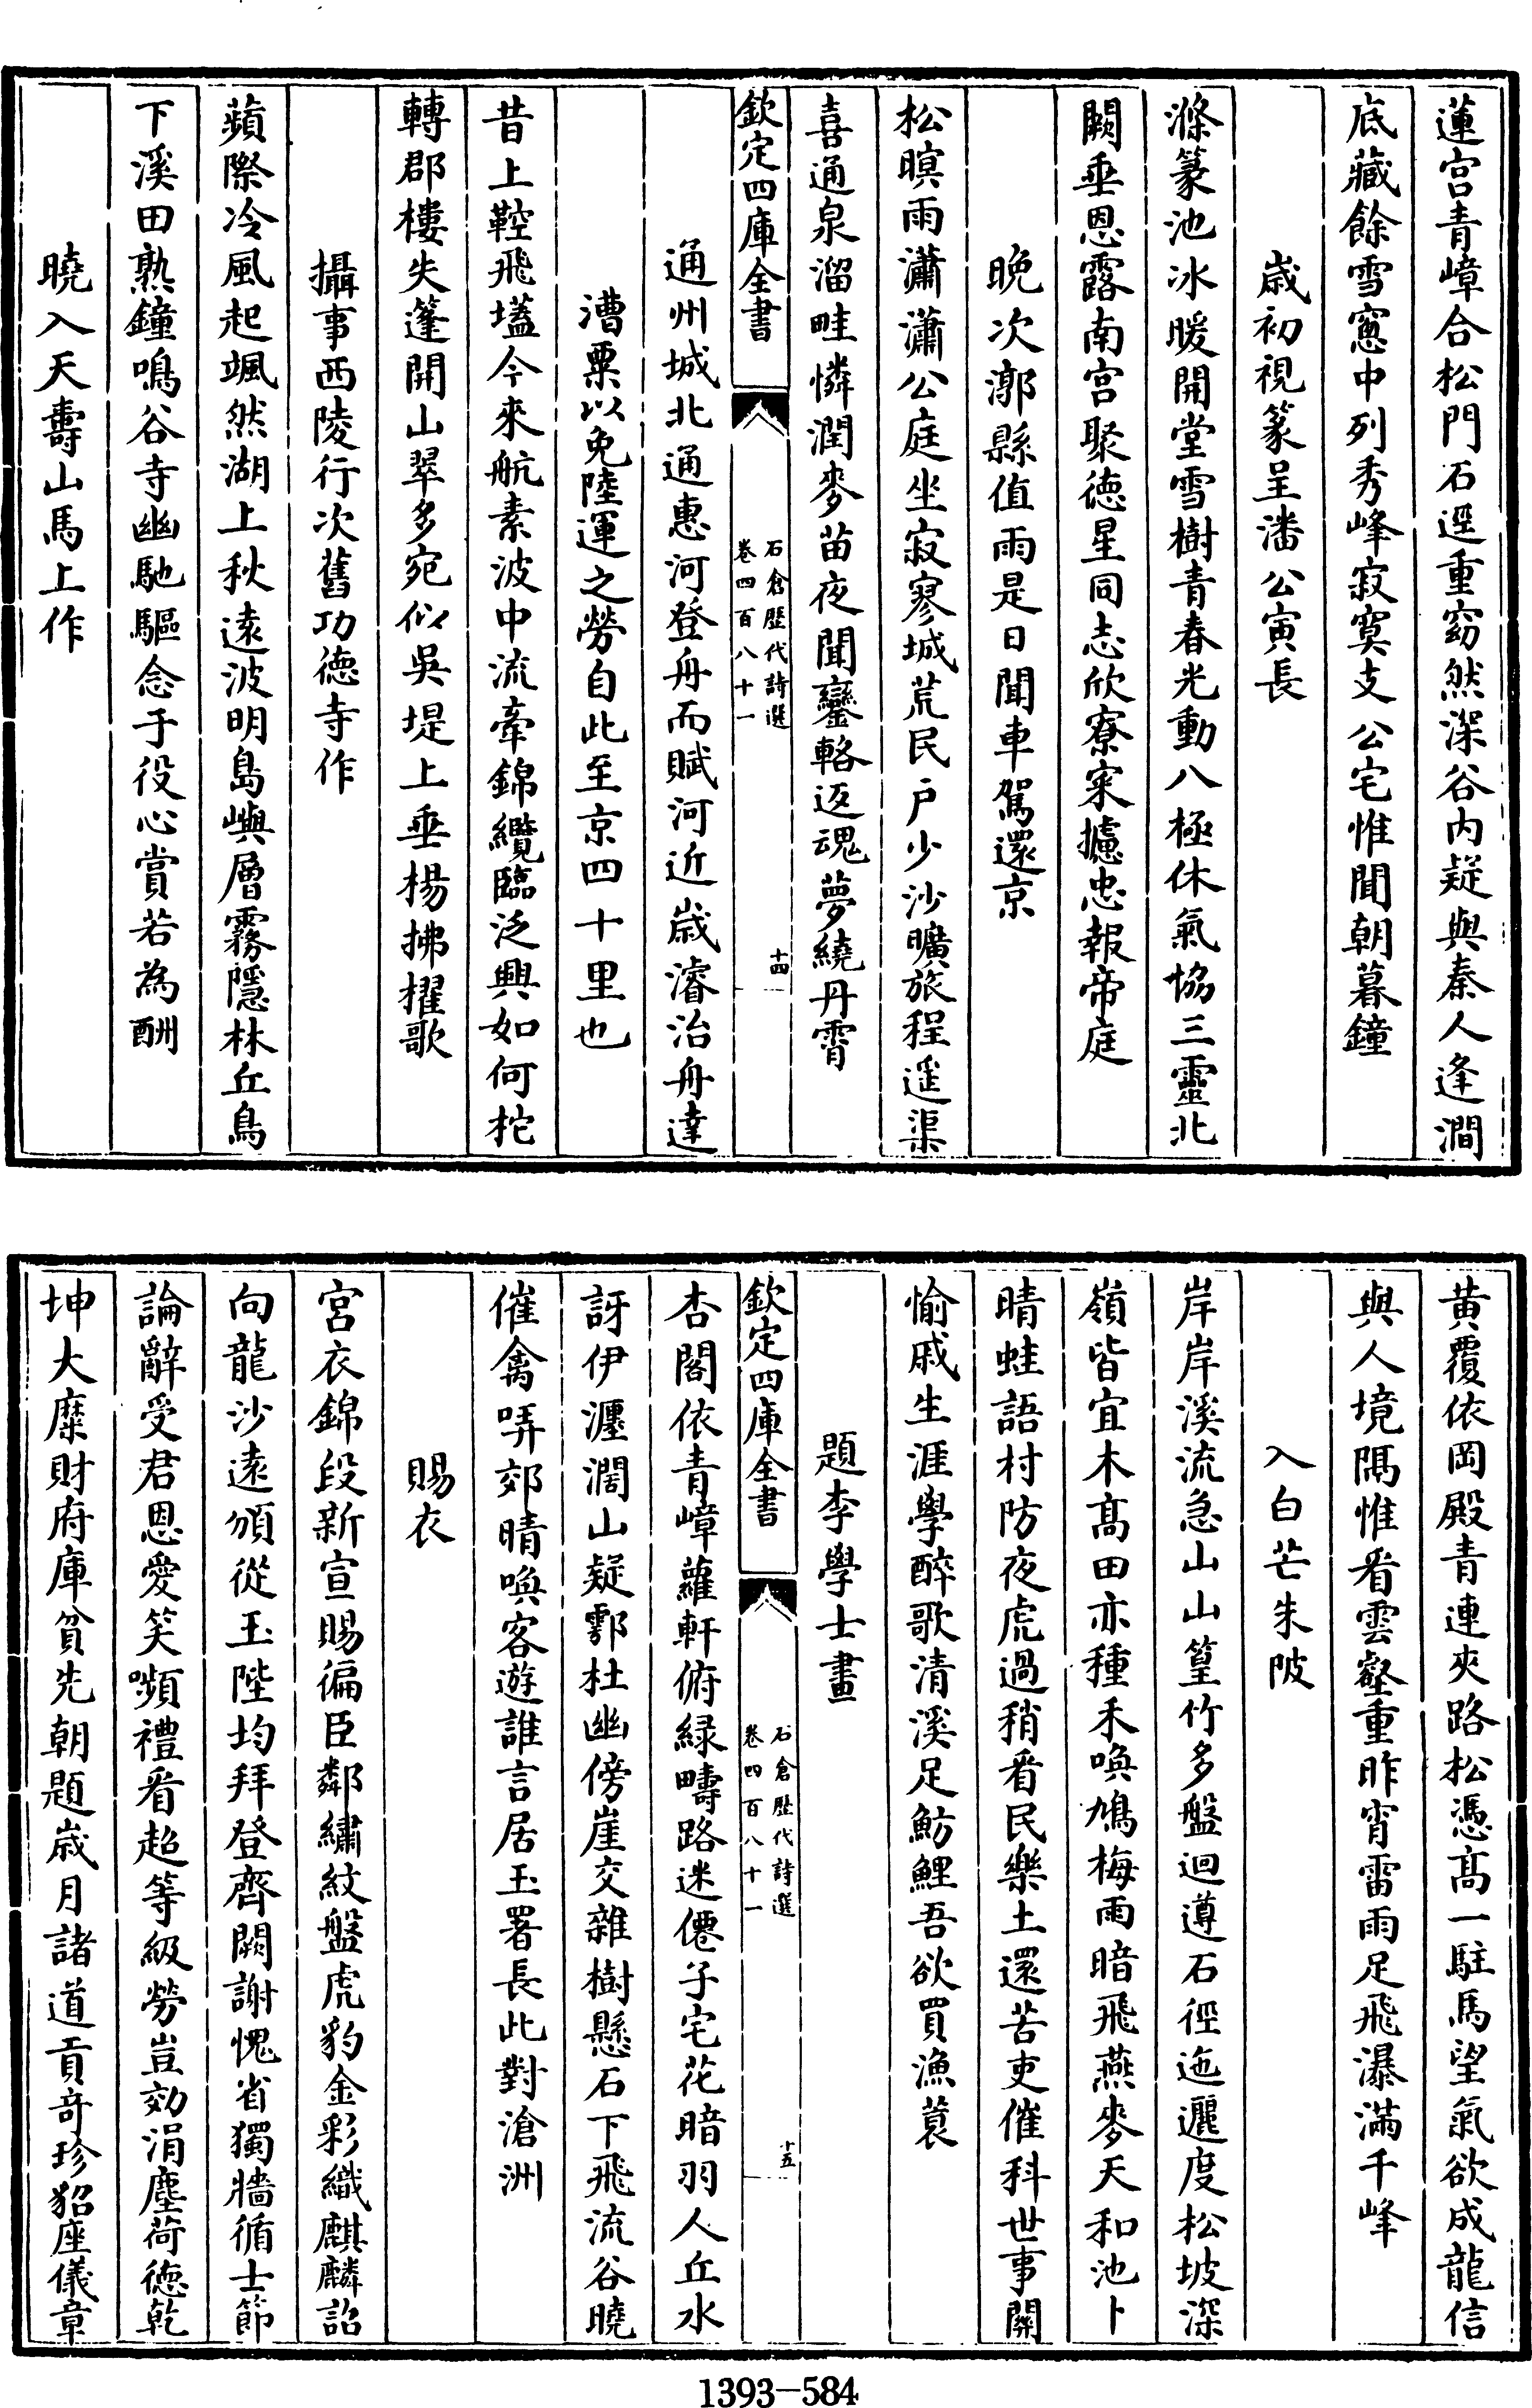 蓮宫青嶂合松門石逕重窈然深谷内疑與秦人逢澗
底藏餘雪窻中列秀峰寂寞支公宅惟聞朝暮鐘
歳初視篆呈潘公寅長
滌篆池冰暖開堂雪樹青春光動八極休氣協三靈北
闕垂恩露南宫聚徳星同志欣寮寀攄忠報帝庭
晚次漷縣值雨是日聞車駕還京
松暝雨瀟瀟公庭坐寂寥城荒民戸少沙曠旅程遥渠
喜通泉溜畦憐潤麥苗夜聞鑾輅返魂夢繞丹霄
欽定四庫全書
石倉歷代詩選
卷四百八十一
十四
通州城北通惠河登舟而賦河近歳濬治舟達
漕粟以免陸運之勞自此至京四十里也
昔上鞚飛壒今來航素波中流牽錦纜臨泛興如何柁
轉郡樓失篷開山翠多宛似吳堤上垂楊拂櫂歌
攝事西陵行次舊功徳寺作
蘋際冷風起颯然湖上秋遠波明島嶼層霧隱林丘鳥
下溪田熟鐘鳴谷寺幽馳驅念于役心賞若為酬
曉入天壽山馬上作
黄覆依岡殿青連夾路松憑髙一駐馬望氣欲成龍信
與人境隅惟看雲壑重昨宵雷雨足飛瀑滿千峰
入白芒朱陂
岸岸溪流急山山篁竹多盤迴遵石徑迤邐度松坡深
嶺皆宜木髙田亦種禾喚鳩梅雨暗飛燕麥天和池卜
晴蛙語村防夜虎過稍看民樂土還苦吏催科世事關
愉戚生涯學醉歌清溪足魴鯉吾欲買漁蓑
題李學士畫
欽定四庫全書
石倉歷代詩選
卷四百八十一
十五
杏閣依青嶂蘿軒俯緑疇路迷僊子宅花暗羽人丘水
訝伊瀍濶山疑鄠杜幽傍崖交雜樹懸石下飛流谷曉
催禽哢郊晴喚客遊誰言居玉署長此對滄洲
賜衣
宫衣錦段新宣賜徧臣鄰繡紋盤虎豹金彩織麒麟詔
向龍沙遠頒從玉陛均拜登齊闕謝愧省獨牆循士節
論辭受君恩愛笑嚬禮看超等級勞豈効涓塵荷徳乾
坤大糜財府庫貧先朝題歳月諸道貢竒珍貂座儀章
1393-584